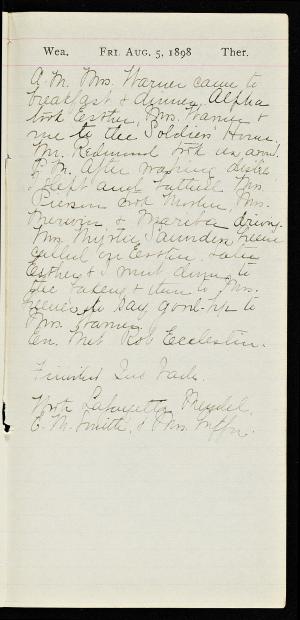 Wea. FRI. AUG. 5, 1898 Ther.
A.M. Mrs. Warner came to
breakfast & dinner. Alpha
took Esther, Mrs. Warner &
me to the Soldiers' Home.
Mr. Redmund took us around.
P.M. After washing dishes
I slept and tatted. Mrs.
Pierson took Mother, Mrs.
& drivng.
Mrs. Myrtie Saunders
called on Esther. Later
Esther & I went down to
the & then to Mrs.
to say good-by to
Mrs. Warner.
Ev. Met Rob Ecclestin.
Finished
Wrote Lafayette,
C. M. Smith, & Mrs.